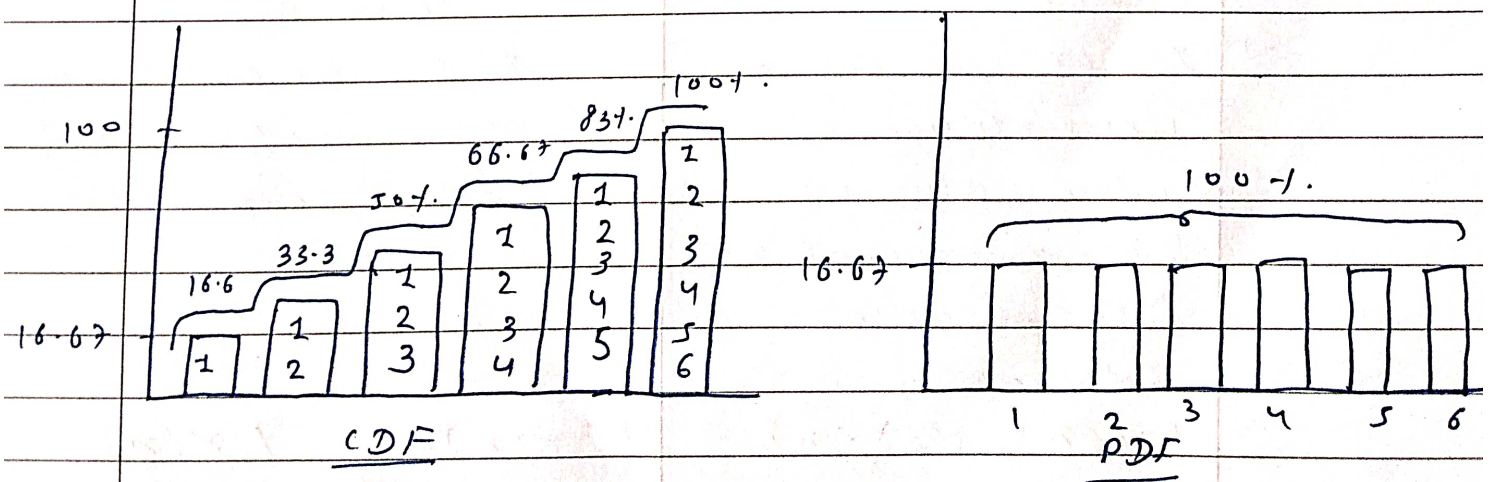 100
16.67
16.6
33.3
50%.
66.67
83%.
100%.
1
1
2
1
2
3
1
2
3
4
1
2
3
4
5
1
2
3
4
5
6
CDF
16.67
100%.
1 2 3 4 5 6
PDF